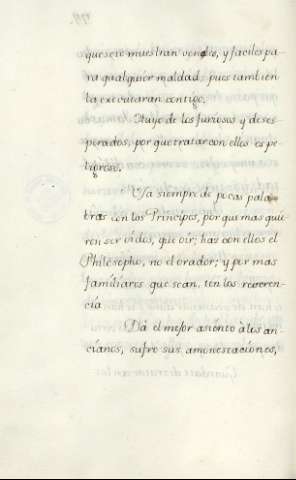 que se te muestran vendes, y faciles pa
ra qualquier maldad, pues tambien
la executaran contigo.
Huye de los furiosos y deses
perados, por que tratar con ellos es pe
ligroso.
Usa siempre de pocas pala
bras con los Principes, por que mas quie
ren ser oidos, que oir; haz con ellos el
Philosopho, no el orador; y por mas
familiares que sean, ten los reveren
cia.
Dá el mejor asiento à los an
cianos, sufre sus amonestaciones,